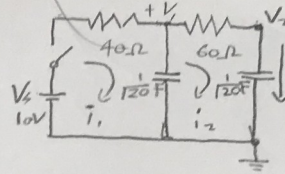 + V V₂
40Ω 60Ω
1/120 F 1/120 F
Vs
10V i₁ i₂